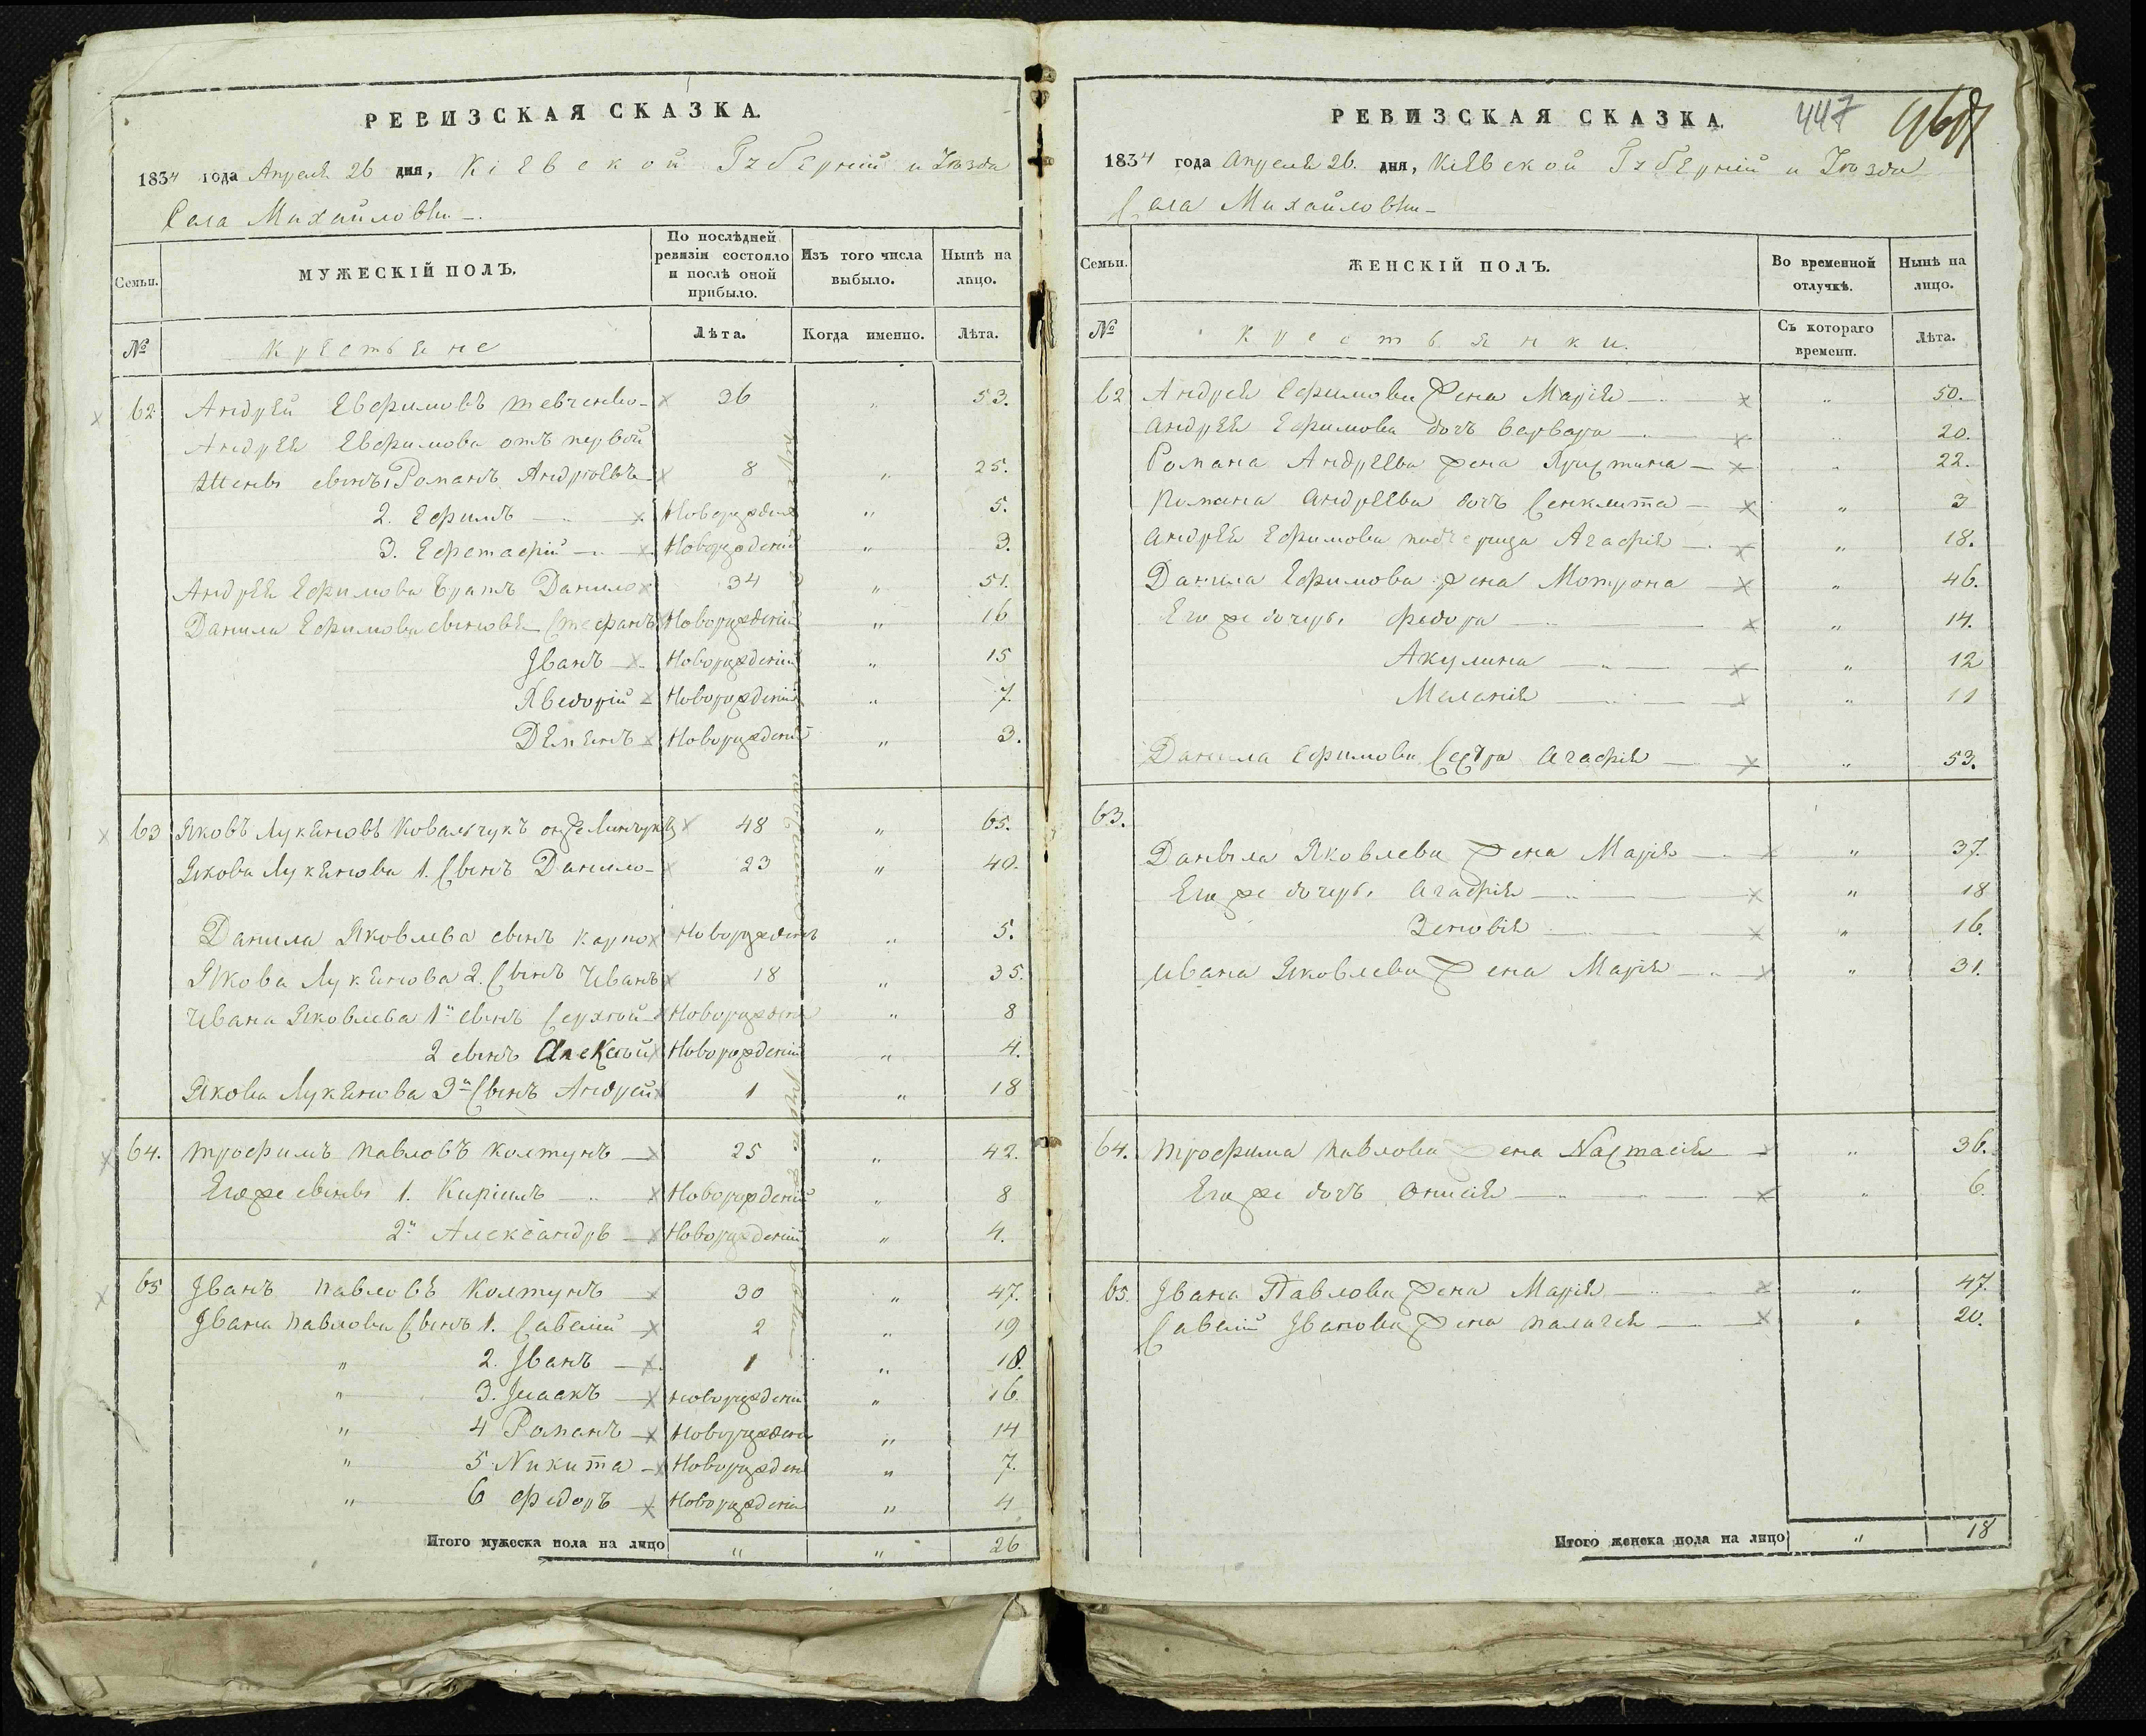 РЕВИЗСКАЯ СКАЗКА.
1834 года Апреля 26 дня, Кіевской Губерніи и Уѣзда
Села Михайловки
Семьи.
МУЖЕСКІЙ ПОЛЪ.
По послѣдней ревизіи состояло и послѣ оной прибыло.
Изъ того числа выбыло.
Нынѣ на лицо.
№
Крестьяне
Лѣта.
Когда именно.
Лѣта.
62 Андрей Евфимовъ Шевченко 36 „ 53.
Андрея Евфимова отъ первой
жены сынъ 1 Романъ Андрѣевъ 8 „ 25.
2. Ефимъ Новорожден „ 5.
3. Ефстафій Новорожденій „ 3.
Андрея Ефимова братъ Данило 34 „ 51.
Данила Ефимова сыновья Стефанъ Новорожденій „ 16
Іванъ Новорожденій „ 15
Новорожденій „ 7.
Деменъ Новорожденій „ 3.
63 Яковъ Лукяновъ Ковальчукъ онже 48 „ 65.
Якова Лукянова 1. Сынъ Данило 23 „ 40.
Данила Яковлева сынъ Карпо Новорожденъ „ 5.
Якова Лукянова 2. Сынъ Иванъ 18 „ 35.
Ивана Яковлева 1й сынъ Сергѣй Новорожден „ 8
2 сынъ Алексѣй Новорожденій „ 4.
Якова Лукянова 3й Сынъ Андрей 1 „ 18
64. Трофимъ Павловъ Колтунъ 25 „ 42.
Егоже сыны 1. Кирилъ Новорожденій „ 8
2й Александръ Новорожденій „ 4.
65 Іванъ Павловъ Колтунъ 30 „ 47.
Івана Павлова Сынъ 1. Савелій 2 „ 19
„ 2. Іванъ 1 „ 18.
„ 3. Ісаакъ Новорожденій „ 16.
„ 4 Романъ Новорожден „ 14
„ 5 Никита Новорожден „ 7.
„ 6 Федоръ Новорожденій „ 4
Итого мужеска пола на лицо „ „ 26
РЕВИЗСКАЯ СКАЗКА.
447
1834 года Апреля 26. дня, Кіевской Губерніи и Уѣзда
Села Михайловки
Семьи.
ЖЕНСКІЙ ПОЛЪ.
Во временной отлучкѣ.
Нынѣ на лицо.
№
Крестьянки.
Съ котораго времени.
Лѣта.
62 Андрея Ефимова Жена Марія „ 50.
Андрея Ефимова дочъ Варвара „ 20.
Романа Андреева жена Христина „ 22.
Романа Андреева дочъ Сенклита „ 3
Андрея Ефимова падчерица Агафія „ 18.
Данила Ефимова жена Мотрона „ 46.
Егоже дочерь Федора „ 14.
Акулина „ 12
Меланія „ 11
Данила Ефимова Сестра Агафія „ 53.
63.
Данила Яковлева Жена Марія „ 37.
Егоже дочерь Агафія „ 18
Зеновія „ 16.
Ивана Яковлева Жена Марія „ 31.
64. Трофима Павлова Жена Настасія „ 36.
Егоже дочъ Онисія „ 6.
65. Івана Павлова Жена Марія „ 47.
Савелія Іванова Жена Палагея „ 20.
Итого женска пола на лицо „ 18